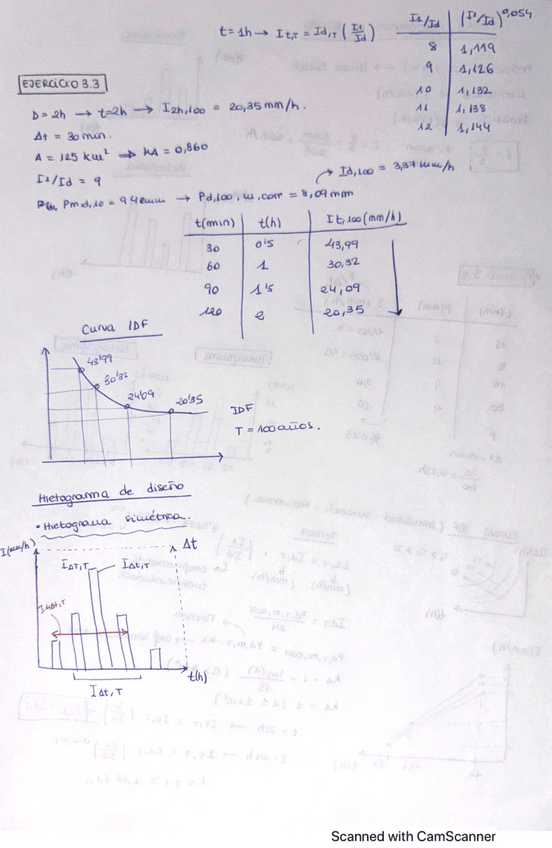 t = 1h → It,T = Id,T (I1/Id)
I1/Id | (I1/Id)^0,054
8 | 1,119
9 | 1,126
10 | 1,132
11 | 1,138
12 | 1,144
EJERCICIO 3.3
D = 2h → t = 2h → I2h,100 = 20,35 mm/h.
Δt = 30 min.
A = 125 km² ⇒ KA = 0,860
I1/Id = 9
→ Id,100 = 3,37 mm/h
→ Pd,100, m, corr = 8,09 mm
t(min) | t(h) | It,100 (mm/h)
30 | 0'5 | 43,99
60 | 1 | 30,32
90 | 1'5 | 24,09
120 | 2 | 20,35
Curva IDF
43'99
30'32
24'09
20'35
IDF
T = 100 años.
Hietograma de diseño
• Hietograma simétrico.
I(mm/h)
Δt
IΔt,T
IΔt,T
I4Δt,T
t(h)
IΔt,T
Scanned with CamScanner